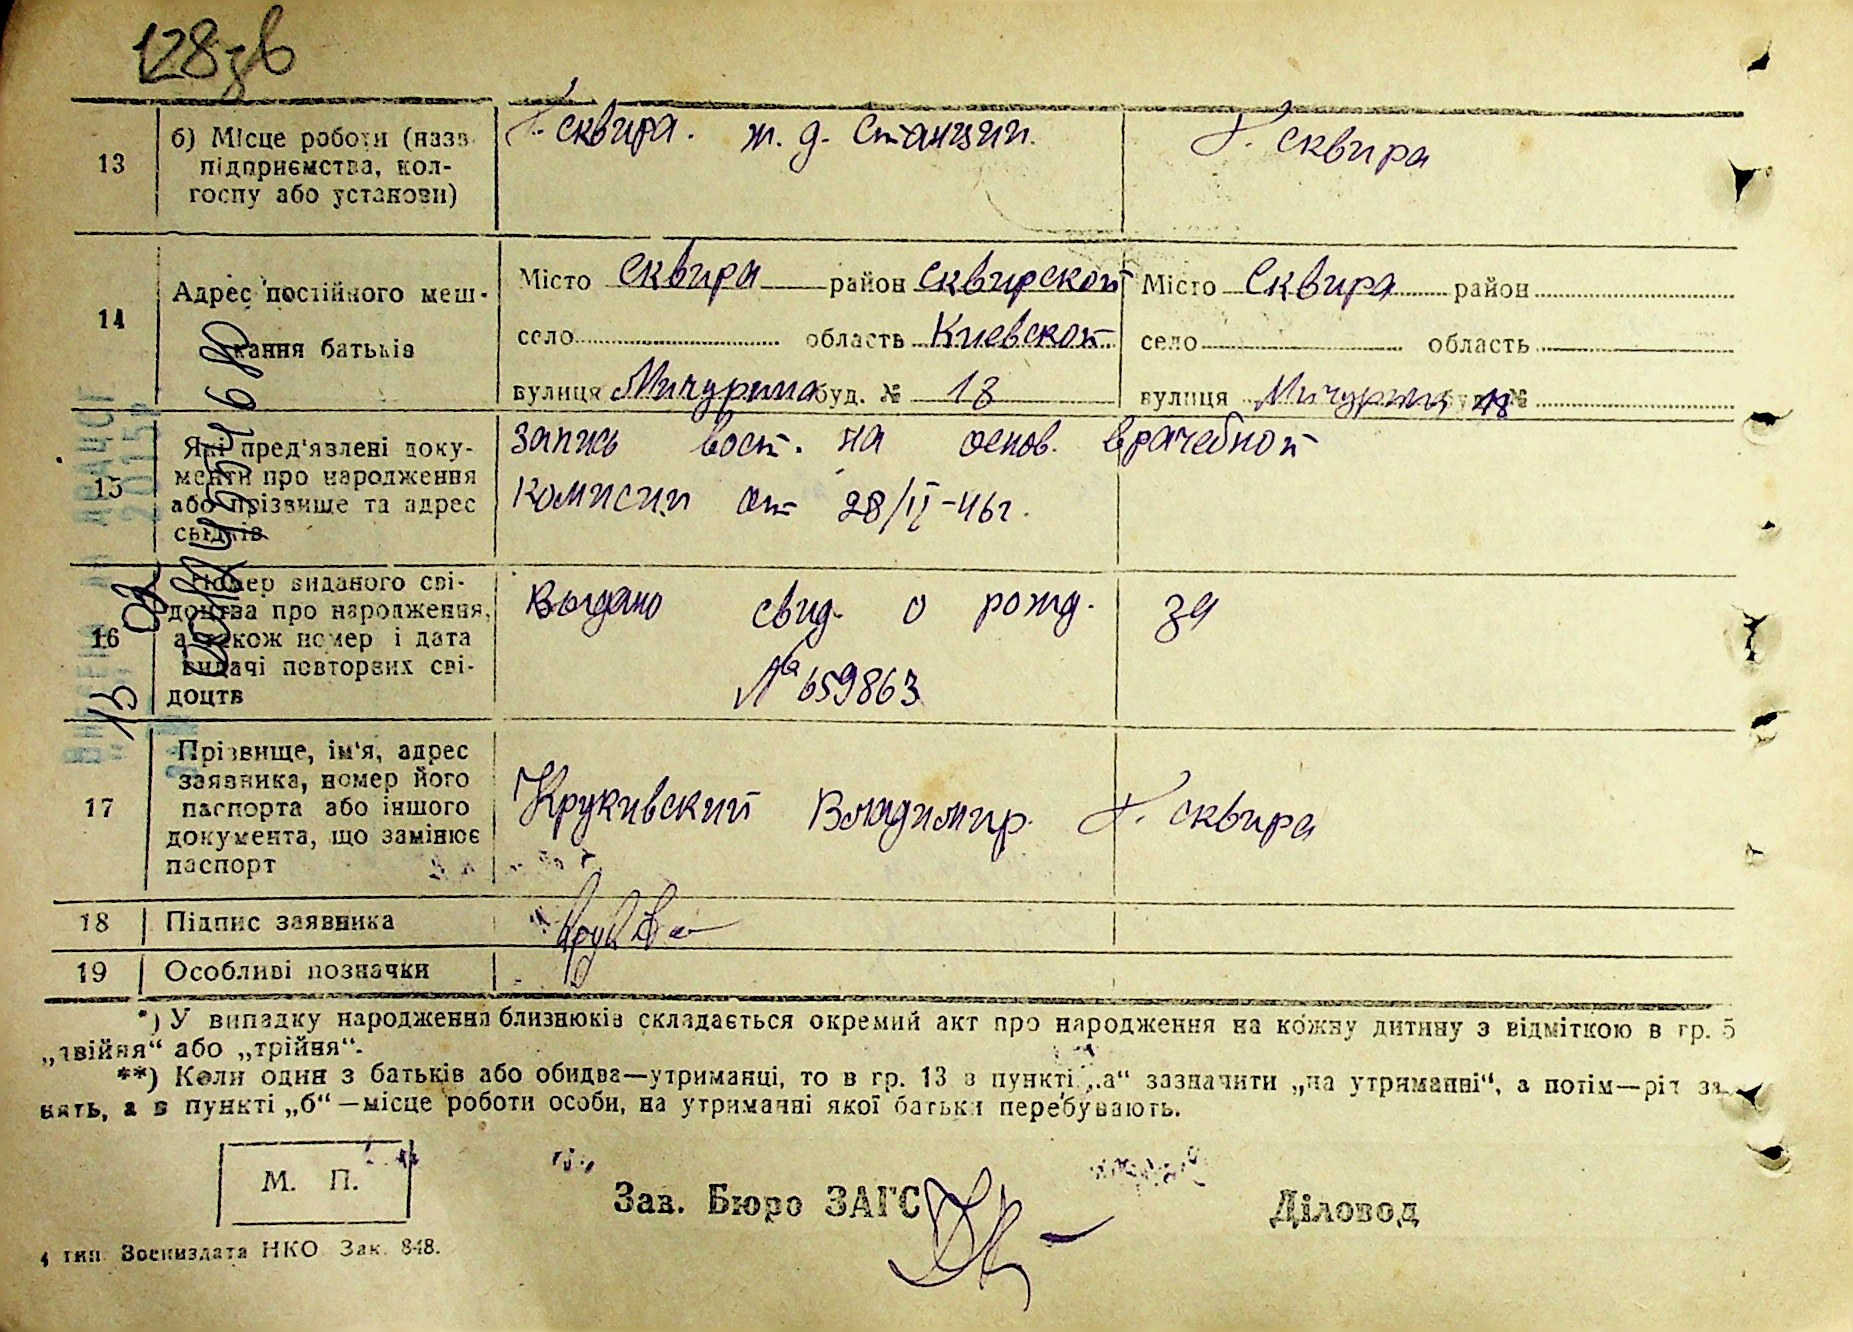 128зв
13 б) Місце роботи (назв підприємства, колгоспу або установи)
г. Сквира. ж. д. Станции.
г. Сквира
14 Адрес постійного мешкання батьків
Місто Сквира район Сквирской
село область Киевской
вулиця Мичурина буд. № 18
Місто Сквира район
село область
вулиця Мичурина буд. № 18
15 Які пред'явлені документи про народження або прізвище та адрес свідків
запись вост. на основ. врачебной
комисии от 28/II-46г.
16 Номер виданого свідоцтва про народження, а також номер і дата видачі повторних свідоцтв
Выдано свид. о рожд. за
№ 659863
17 Прізвище, ім'я, адрес заявника, номер його паспорта або іншого документа, що замінює паспорт
Крукивский Владимир. г. Сквира
18 Підпис заявника
19 Особливі позначки
*) У випадку народження близнюків складається окремий акт про народження на кожну дитину з відміткою в гр. 5
„двійня“ або „трійня“.
**) Коли один з батьків або обидва—утриманці, то в гр. 13 в пункті „а“ зазначити „на утриманні“, а потім—ріт за-
нять, а в пункті „б“—місце роботи особи, на утриманні якої батьки перебувають.
М. П.
Зав. Бюро ЗАГС
Діловод
4 тип. Воениздата НКО Зак. 848.